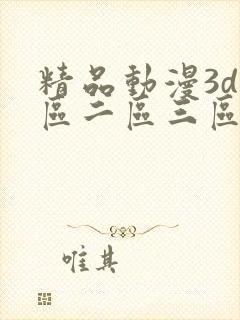 精品動漫3d
區二區三區
唯其